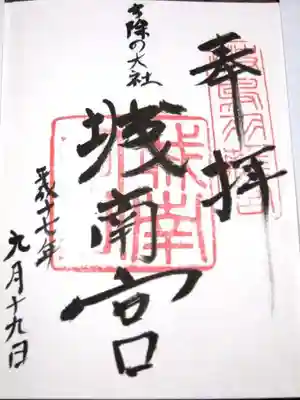 奉拝
方除の大社
城南宮
平成十七年
九月十九日
城南宮